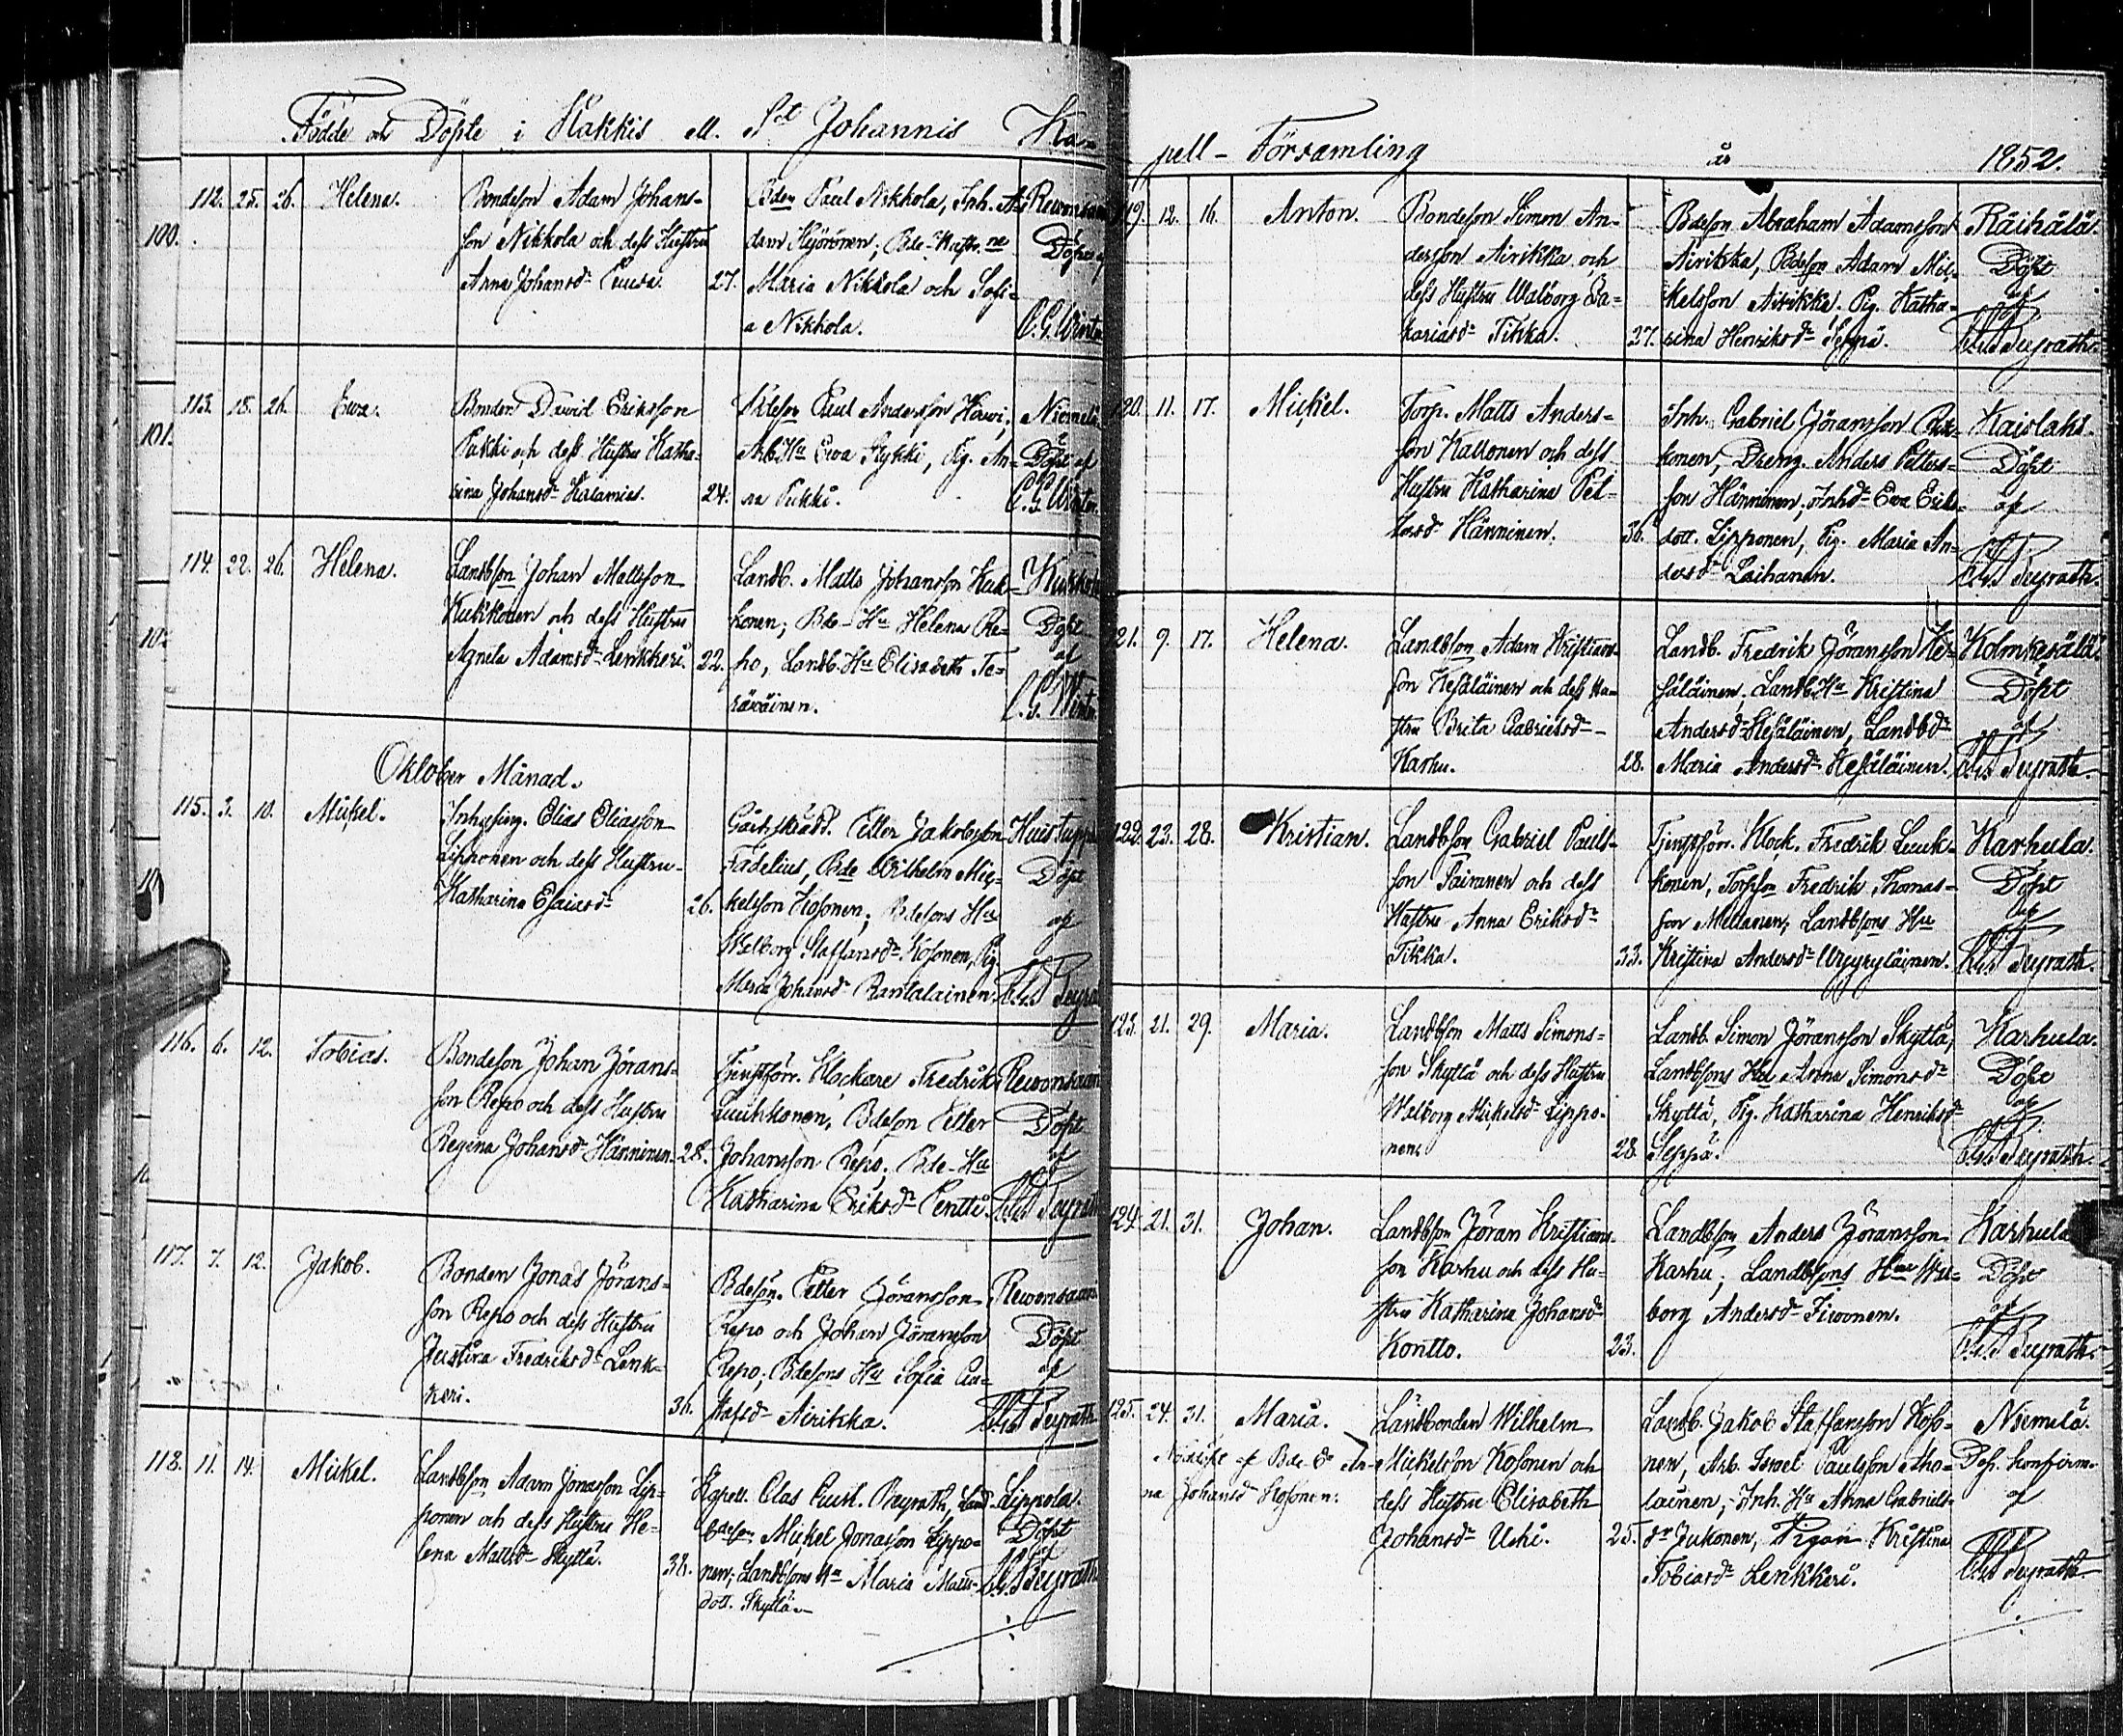 Födde och Döpte i Kakkis ell. Sct Johannis Ka-
112. 25. 26. Helena.
Bondeson Adam Johans-
son Nikkola och dess Hustru
Anna Johansdr Puusa. 27.
Bden Paul Nikkola, Inh. A-
dam Hyörönen; Bde-Hustr.ne
Maria Nikkola och Sofi-
a Nikkola.
Rewonsaari
Döpt af
C. G. Winter
113. 18. 26. Ewa.
Bonden David Eriksson
Pukki och dess Hustru Katha-
rina Johansdr Kalamies. 24.
Paul Andersson
Arb.Hu Ewa Pykki, Pig. An-
na Pukki.
Niemelä
Döpt af
C. G. Winter
114. 22. 26. Helena.
Landbson Johan Mattsson
Kukkonen och dess Hustru
Agneta Adamsdr Lenkkeri. 22.
Landb. Matts Johansson Kuk-
konen; Bde-Hu Helena Re-
po, Landb.Hu Elisabeth Te-
räwäinen.
Kukkola
Döpt
af
C. G. Winter
Oktober Månad.
115. 3. 10. Mickel.
Inhysing. Elias Eliasson
Lipponen och dess Hustru
Katharina Esaiasdr 26.
Petter Jakobsson
Fadelius, Bde Wilhelm Mic-
kelsson Kosonen; Bdesons Hu
Walborg Staffansdr Kosonen, Pig.
Maria Johansdr Rantalainen.
Döpt
af
116. 6. 12. Tobias.
Bondeson Johan Jörans-
son Repo och dess Hustru
Regina Johansdr Hänninen. 28.
Tjenstförr. Klockare Fredrik
Luukkonen, Bdeson Petter
Johansson Repo; Bde-Hu
Katharina Eriksdr Pentti.
Rewonsaari
Döpt
af
117. 7. 12. Jakob.
Bonden Jonas Jörans-
son Repo och dess Hustru
Justina Fredriksdr Lenk-
keri. 36.
Bdeson. Petter Jöransson
Repo och Johan Jöransson
Repo; Bdesons Hu Sofia Gu-
stafsdr Airikka.
Rewonsaari
Döpt
af
118. 11. 14. Mickel.
Landbson Adam Jonasson Lip-
ponen och dess Hustru He-
lena Mattsdr Skyttä. 38.
Kapell. Clas Gust. Peyrath, Land-
bdeson Mickel Jonasson Lippo-
nen; Landbsons Hu Maria Matts-
dott. Skyttä.
Lippola.
Döpt
af
pell-Församling år 1852.
119. 12. 16. Anton.
Bondeson Simon An-
dersson Airikka och
dess Hustru Walborg Sa-
kariasdr Tikka. 27.
Bdeson Abraham Adamsson
Airikka, Bdeson Adam Mic-
kelsson Airikka; Pig. Katha-
rina Henriksdr Seppä.
Räihälä.
Döpt
af
120. 11. 17. Mickel.
Torp. Matts Anders-
son Kallonen och dess
Hustru Katharina Pet-
tersdr Hänninen. 36.
Inh. Gabriel Jöransson
konen, Dreng. Anders Petters-
son Hänninen; Inhdr Ewa Eriks-
dott. Lipponen, Pig. Maria An-
dersdr Laihanen.
Kaislaks.
Döpt
af
121. 9. 17. Helena.
Landbson Adam Kristians-
son Kesäläinen och dess Hu-
stru Brita Gabrielsdr
Karhu. 28.
Landb. Fredrik Jöransson Ke-
säläinen; Landb.Hu Kristina
Andersdr Kesäläinen, Landbdr
Maria Andersdr Kesäläinen.
Kolmkesälä.
Döpt
af
122. 23. 28. Kristian.
Landbson Gabriel Pauls-
son Pairanen och dess
Hustru Anna Eriksdr
Tikka. 33.
Tjenstförr. Klock. Fredrik Luuk-
konen, Torpson Fredrik Thomas-
son Mellanen; Landbsons Hu
Kristina Andersdr
Karhula.
Döpt
af
123. 21. 29. Maria.
Landbson Matts Simons-
son Skyttä och dess Hustru
Walborg Mickelsdr Lippo-
nen. 28.
Landb. Simon Jöransson Skyttä,
Landbsons Hu Anna Simonsdr
Skyttä, Pig. Katharina Henriksdr
Seppä.
Karhula.
Döpt
af
124. 21. 31. Johan.
Landbson Jöran Kristians-
son Karhu och dess Hu-
stru Katharina Johansdr
Kontto. 23.
Landbson Anders Jöransson
Karhu; Landbsons Hu Wal-
borg Andersdr Siwonen.
Karhula
Döpt
af
125. 24. 31. Maria.
Nöddöpt af Bde-Dr An-
na Johansdr Kosonen.
Landbonden Wilhelm
Mickelsson Kosonen och
dess Hustru Elisabeth
Johansdr Uski. 25.
Landb. Jakob Staffansson Koso-
nen, Arb. Israel Paulsson Aho-
lainen; Inh. Hu Anna Gabriels-
dr Jukonen, Pigan Kristina
Tobiasdr Lenkkeri.
Niemelä.
Döp. konfirm.
af